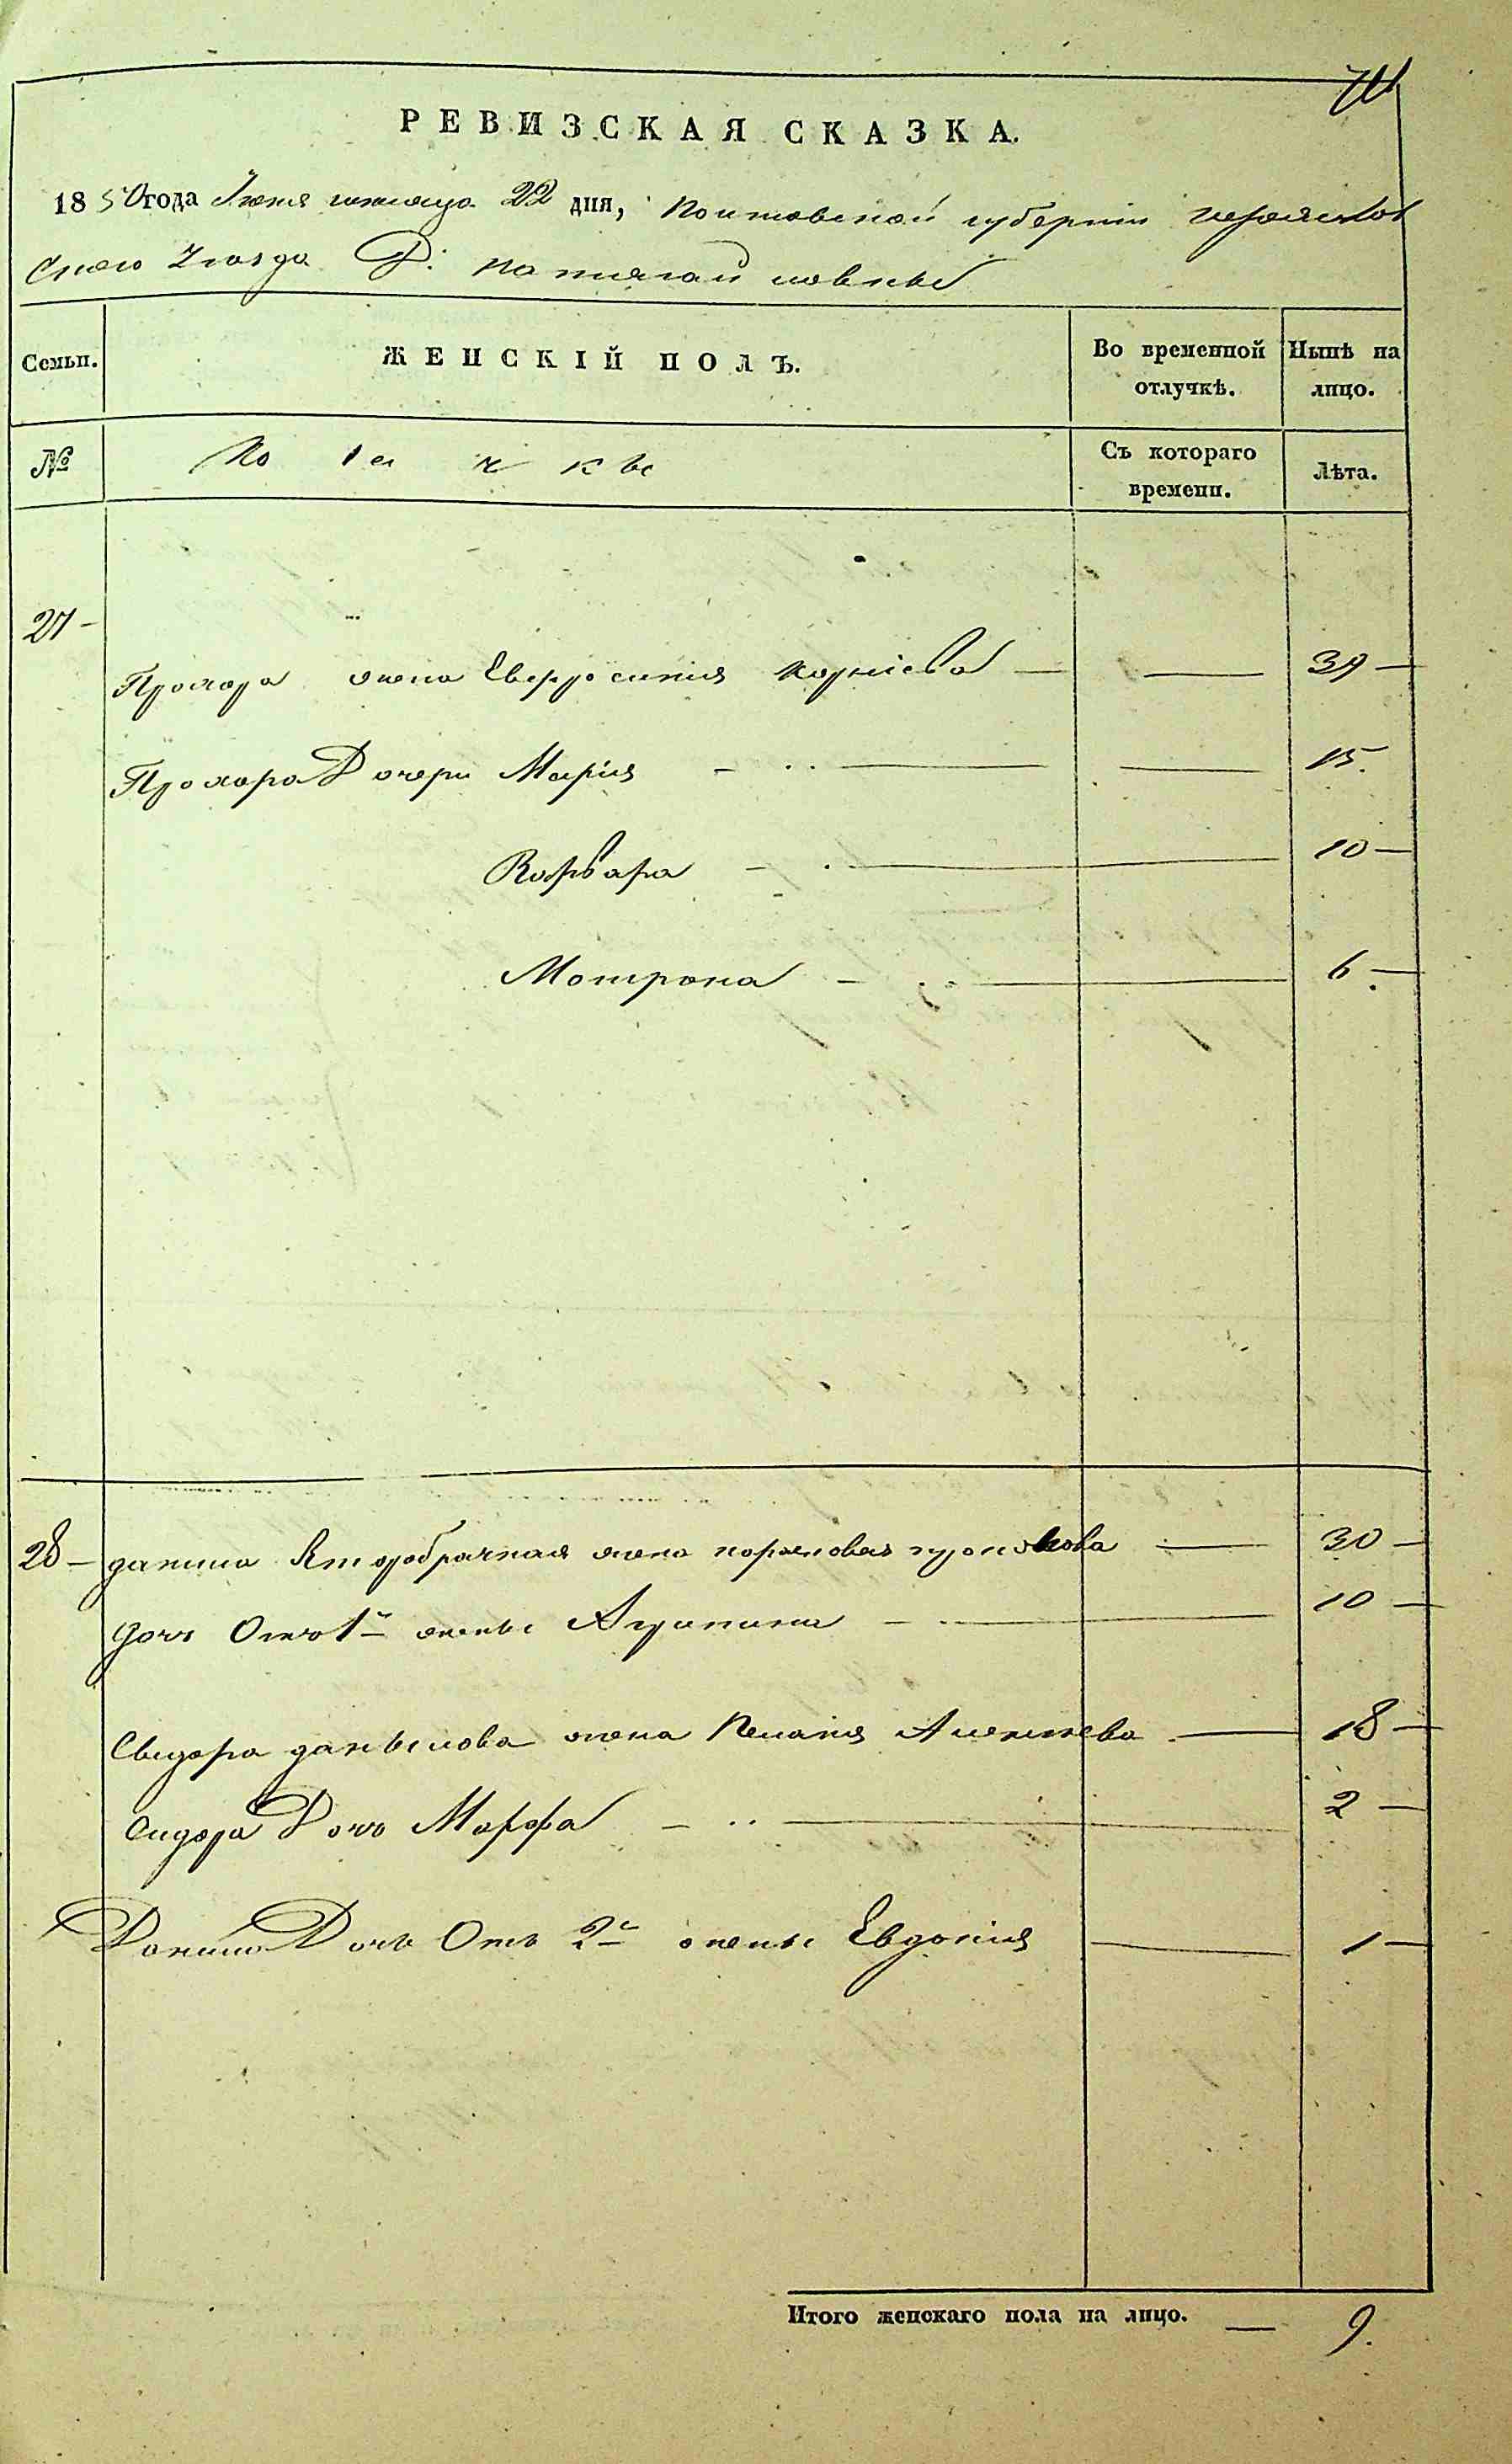 РЕВИЗСКАЯ СКАЗКА.
1850 года Июня месяца 22 дня, Полтавской губернии
ского Уезда Д:
Семьи. ЖЕНСКІЙ ПОЛЪ. Во временной отлучкѣ. Нынѣ на лицо.
№ Съ котораго времени. Лѣта.
27 —
Прохора жена Евфросинія Корніева — — 39 —
Прохора Дочери Марія — — 15.
Варвара — 10 —
Мотрона — 6 —
28 — данила Второбрачная жена — 30 —
дочь Отъ 1й жены Агрипина — 10 —
Свидора данылова жена Пелагия Алексеева — 18 —
Сидора Дочь Марфа — 2 —
Данила Дочь Отъ 2й жены Евдокія — 1 —
Итого женскаго пола на лицо. — 9.